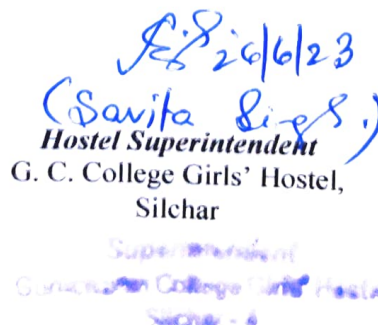 26/6/23
(Savita Singh.)
Hostel Superintendent
G. C. College Girls' Hostel,
Silchar
Superintendent
Gurucharan College Girls' Hostel
Silchar - 4